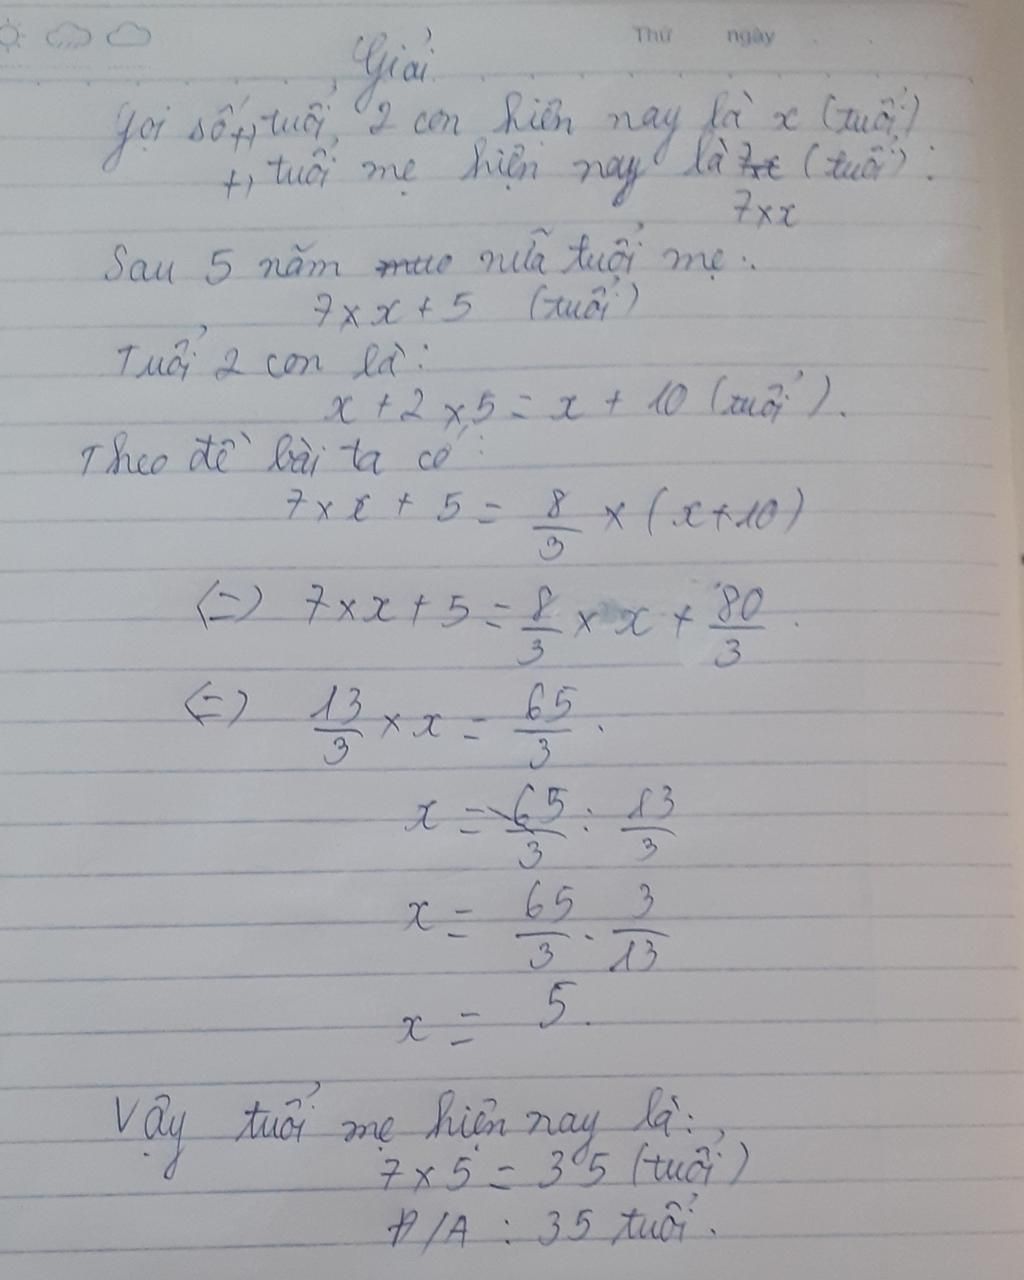 Thứ ngày
Giải
Gọi số +, tuổi 2 con hiện nay là x (tuổi)
+, tuổi mẹ hiện nay là (tuổi):
7 x x
Sau 5 năm nữa tuổi mẹ:
7 x x + 5 (tuổi)
Tuổi 2 con là:
x + 2 x 5 = x + 10 (tuổi).
Theo đề bài ta có:
7 x x + 5 = 8/3 x (x + 10)
(=) 7 x x + 5 = 8/3 x x + 80/3.
(=) 13/3 x x = 65/3.
x = 65/3 : 13/3
x = 65/3 . 3/13
x = 5.
Vậy tuổi mẹ hiện nay là:
7 x 5 = 35 (tuổi)
Đ/A : 35 tuổi.